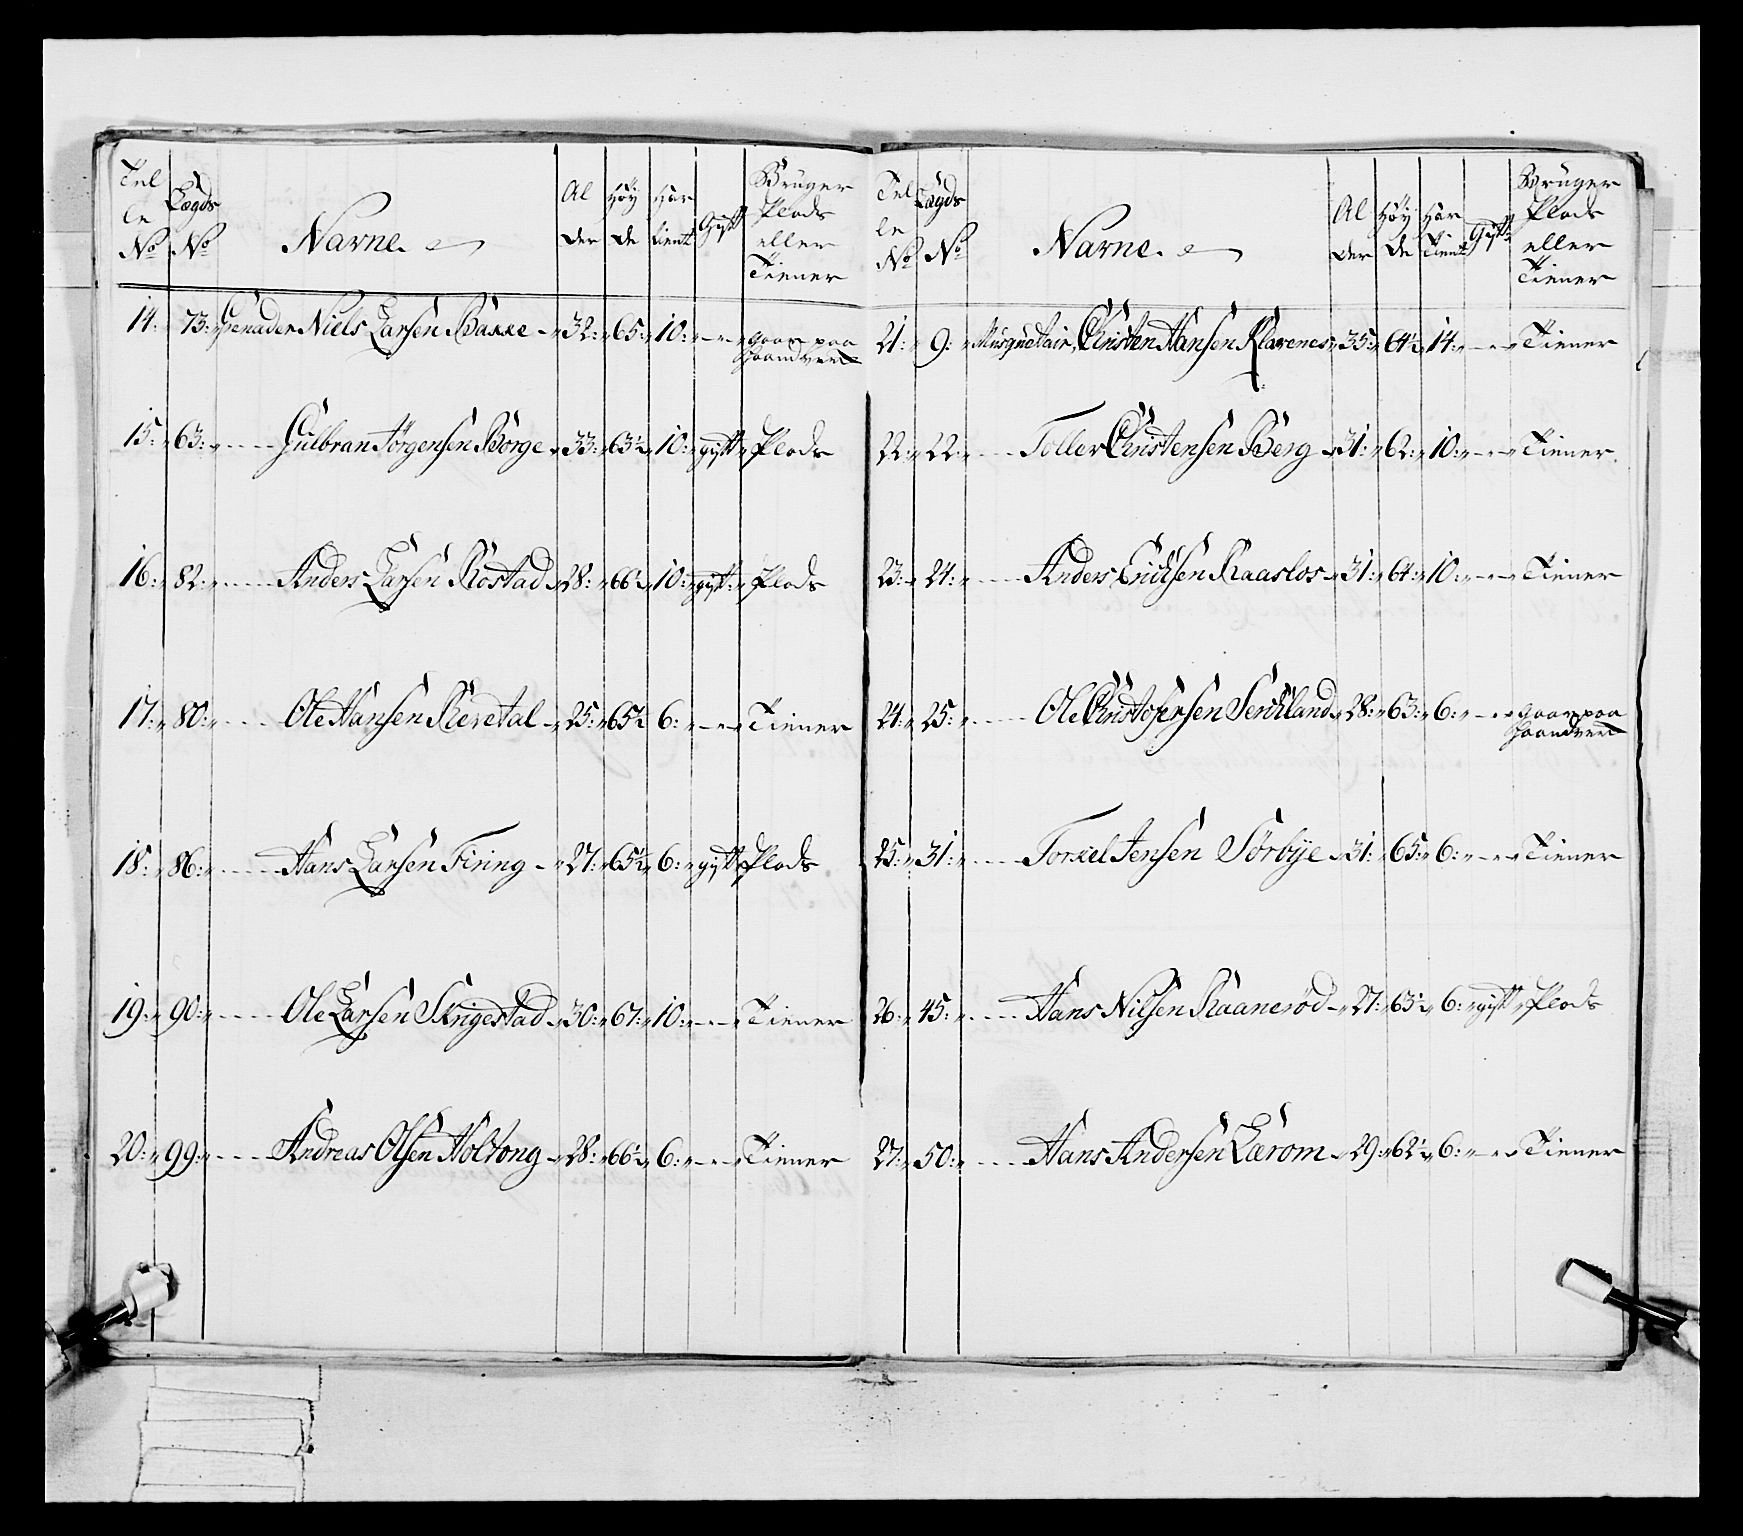 Tel le No Lægds No Navne. Al der Høy de Har tient Gift Bruger Plads eller Tiener
14: 73: Grenader Niels Larsen Backe 32: 65: 10: gaar paa Haandverk
15: 63: Gulbran Jörgensen Borge 33: 63½ 10: gift Plads
16: 82: Anders Larsen Rostad 28: 66½ 10: gift Plads
17: 80: Ole Hansen 25: 65½ 6: Tiener
18: 86: Hans Larsen Firing 27: 65½ 6: gift Plads
19: 90: Ole Larsen Skrigestad 30: 67: 10: Tiener
20: 99: Andreas Olsen Holtong 28: 66½ 6: Tiener
Tel le No Lægds No Navne. Al der Høy de Har Tient Gift Bruger Plads eller Tiener
21: 9: Musquetair, Christen Hansen Klavenes 35: 64½ 14: Tiener
22: 22: Toller Christensen Berg 31: 62: 10: Tiener
23: 24: Anders Erichsen Raaslos 31: 64: 10: Tiener
24: 25: Ole Christofersen 28: 63: 6: gaar paa Haandverk
25: 31: Torkel Jensen Sörbye 31: 65: 6: Tiener
26: 45: Hans Nilsen Raanerød 27: 63½ 6: gift Plads
27: 50: Hans Andersen Lærom 29: 62½ 6: Tiener